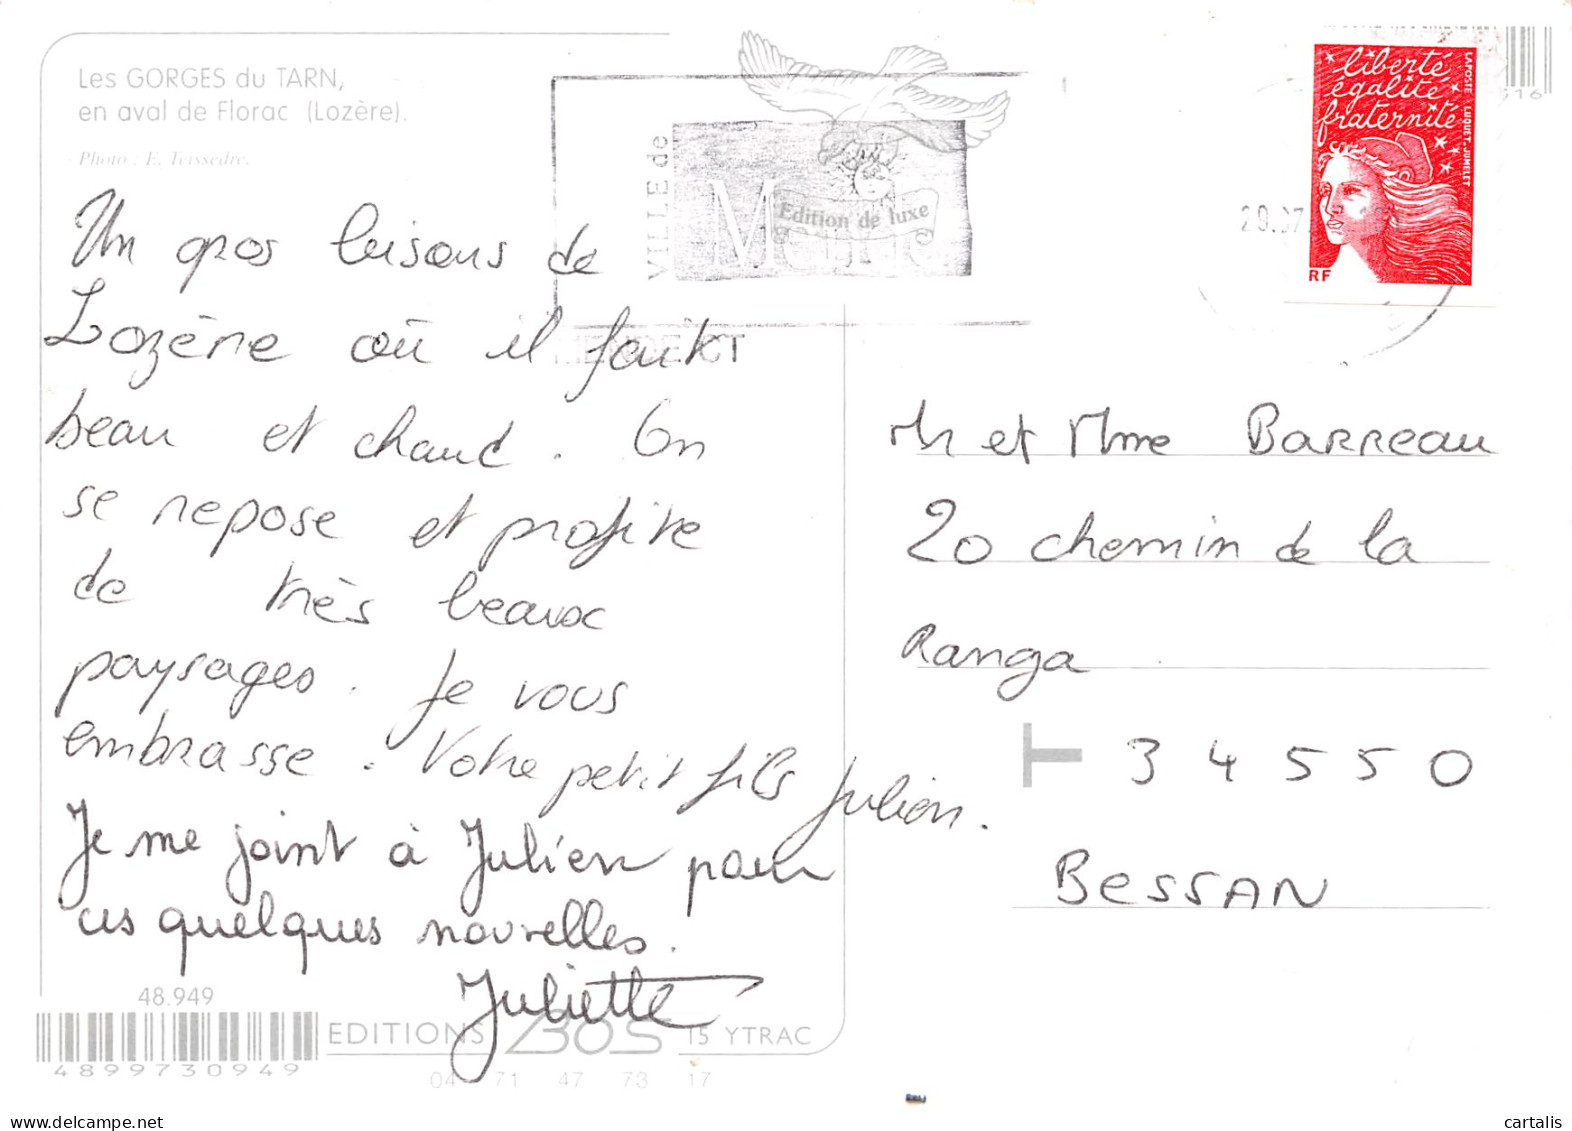 Les GORGES du TARN,
en aval de Florac (Lozère).
Photo : E. Teissedre.
VILLE de
Edition de luxe
liberté
égalité
fraternité
LA POSTE LUQUET-JUMELET
RF
Un gros bisous de
Lozère où il fait
beau et chaud. On
se repose et profite
de très beaux
paysages. Je vous
embrasse. Votre petit fils Julien.
Je me joint à Julien pour
ces quelques nouvelles.
Juliette
Mr et Mme Barreau
20 chemin de la
Ranga
34550
BESSAN
48.949
EDITIONS BOS 15 YTRAC
4899730949
04 71 47 73 17
cartalis